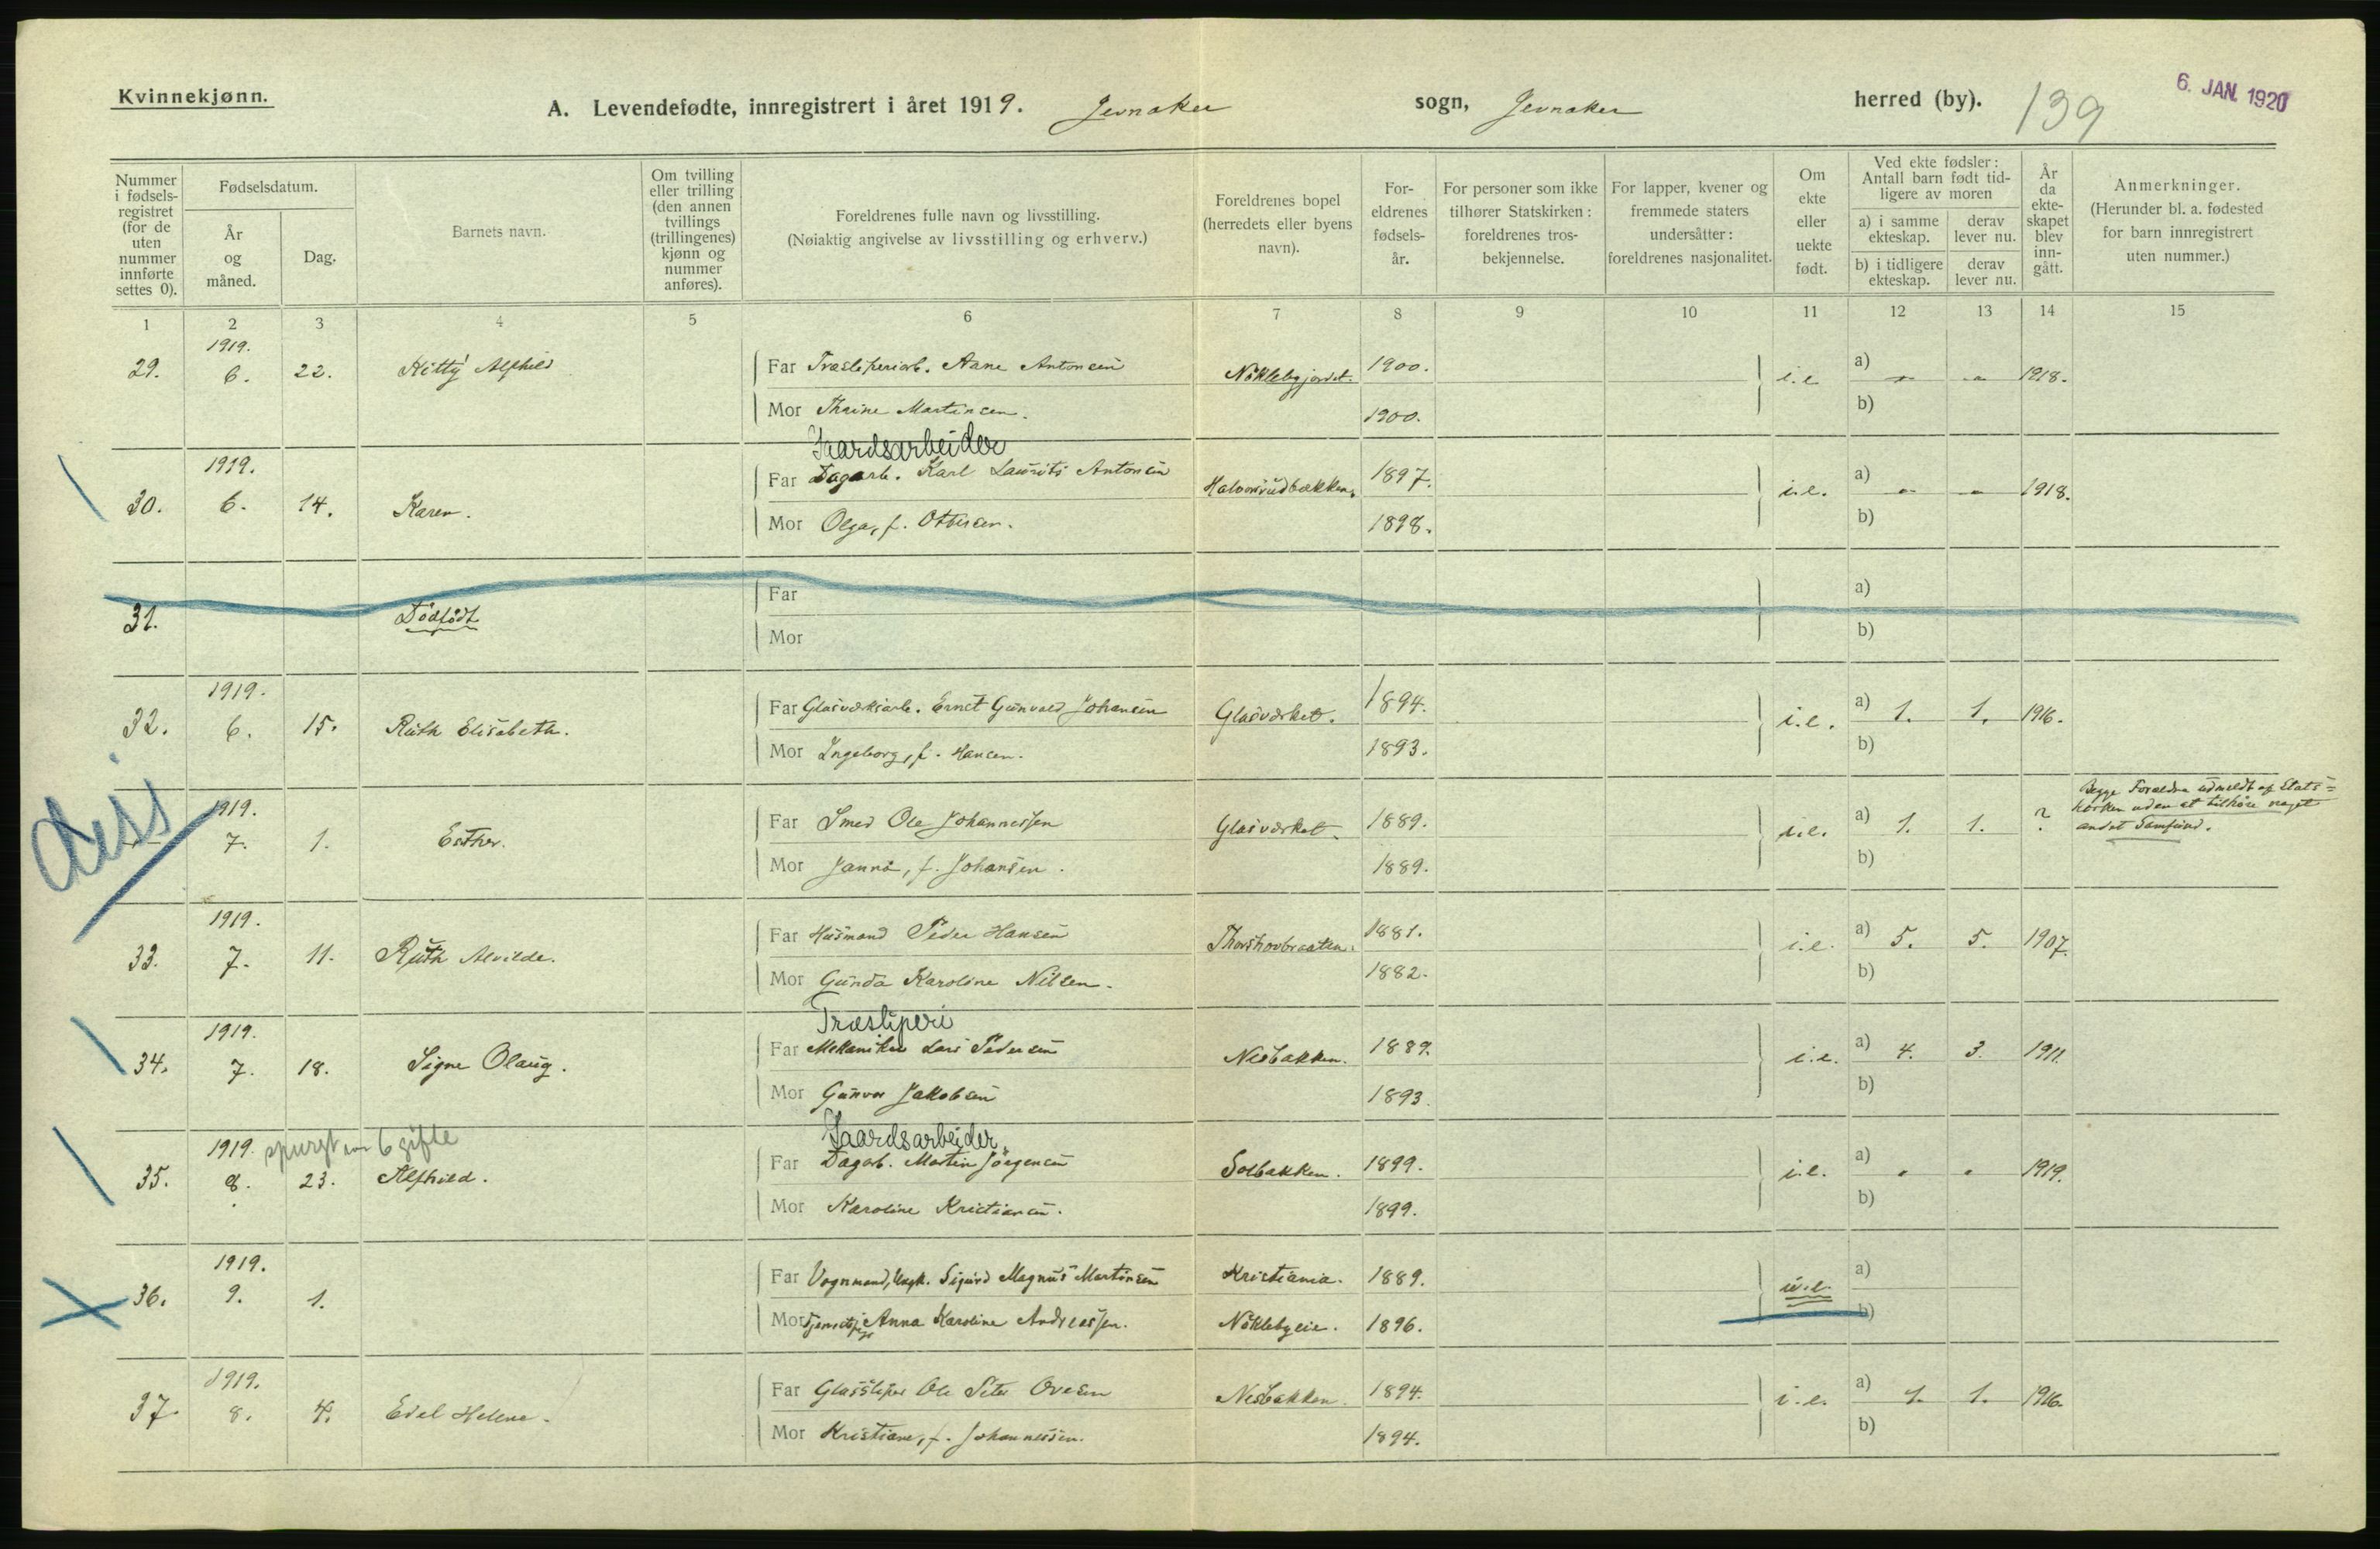 Kvinnekjønn.
A. Levendefødte, innregistrert i året 1919. Jevnaker sogn, Jevnaker herred (by). 139
6. JAN. 1920
Nummer i fødsels-registret (for de uten nummer innførte settes 0).
Fødselsdatum.
År og måned.
Dag.
Barnets navn.
Om tvilling eller trilling (den annen tvillings (trillingenes) kjønn og nummer anføres).
Foreldrenes fulle navn og livsstilling.
(Nøiaktig angivelse av livsstilling og erhverv.)
Foreldrenes bopel (herredets eller byens navn).
For-eldrenes fødsels-år.
For personer som ikke tilhører Statskirken: foreldrenes tros-bekjennelse.
For lapper, kvener og fremmede staters undersåtter: foreldrenes nasjonalitet.
Om ekte eller uekte født.
Ved ekte fødsler: Antall barn født tid-ligere av moren
a) i samme ekteskap.
derav lever nu.
b) i tidligere ekteskap.
derav lever nu.
År da ekte-skapet blev inn-gått.
Anmerkninger.
(Herunder bl. a. fødested for barn innregistrert uten nummer.)
1 2 3 4 5 6 7 8 9 10 11 12 13 14 15
1919.
29. 6. 22. Kitty Alfhild Far Træsliperiarb. Aane Antonsen Nöklebygjordet. 1900. i.e. a) - - 1918.
Mor Thrine Martinsen. 1900. b)
Gaardsarbeider
1919.
30. 6. 14. Karen. Far Dagarb. Karl Laurits Antonsen Halvorsrudbakken. 1897. i.e. a) - - 1918.
Mor Olga, f. Ottesen. 1898. b)
31. Dödfödt Far a)
Mor b)
1919.
32. 6. 15. Ruth Elisabeth. Far Glasværksarb. Ernst Gunvald Johansen Glasværket. 1894. i.e. a) 1. 1. 1916.
Mor Ingeborg, f. Hansen. 1893. b)
Diss
1919.
7. 1. Esther. Far Smed Ole Johannessen Glasværket. 1889. i.e. a) 1. 1. ?
Begge Forældre udmeldt af Stats=
kirken uden at tilhöre noget
andet Samfund.
Mor Janna, f. Johansen. 1889. b)
1919.
33. 7. 11. Ruth Alvilde. Far Husmand Peder Hansen Thorshovbraaten. 1881. i.e. a) 5. 5. 1907.
Mor Gunda Karoline Nilsen. 1882. b)
Træsliperi
1919.
34. 7. 18. Signe Olaug. Far Mekaniker Lars Pedersen Nesbakken. 1889. i.e. a) 4. 3. 1911.
Mor Gunvor Jakobsen 1893. b)
Gaardsarbeider,
1919. spurgt om 6 gifte
35. 8. 23. Alfhild. Far Dagarb. Martin Jörgensen Solbakken. 1899. i.e. a) 1919.
Mor Karoline Kristiansen. 1899. b)
1919.
36. 9. 1. Far Vognmand, Ungk. Sigurd Magnus Martinsen Kristiania. 1889. u.e. a)
Mor Tjenestpige Anna Karoline Andreassen. Nöklebyeie. 1896. b)
1919.
37. 8. 4. Edel Helene. Far Glassliper Ole Peter Ovesen Nesbakken. 1894. i.e. a) 1. 1. 1916.
Mor Kristiane, f. Johannessen. 1894. b)